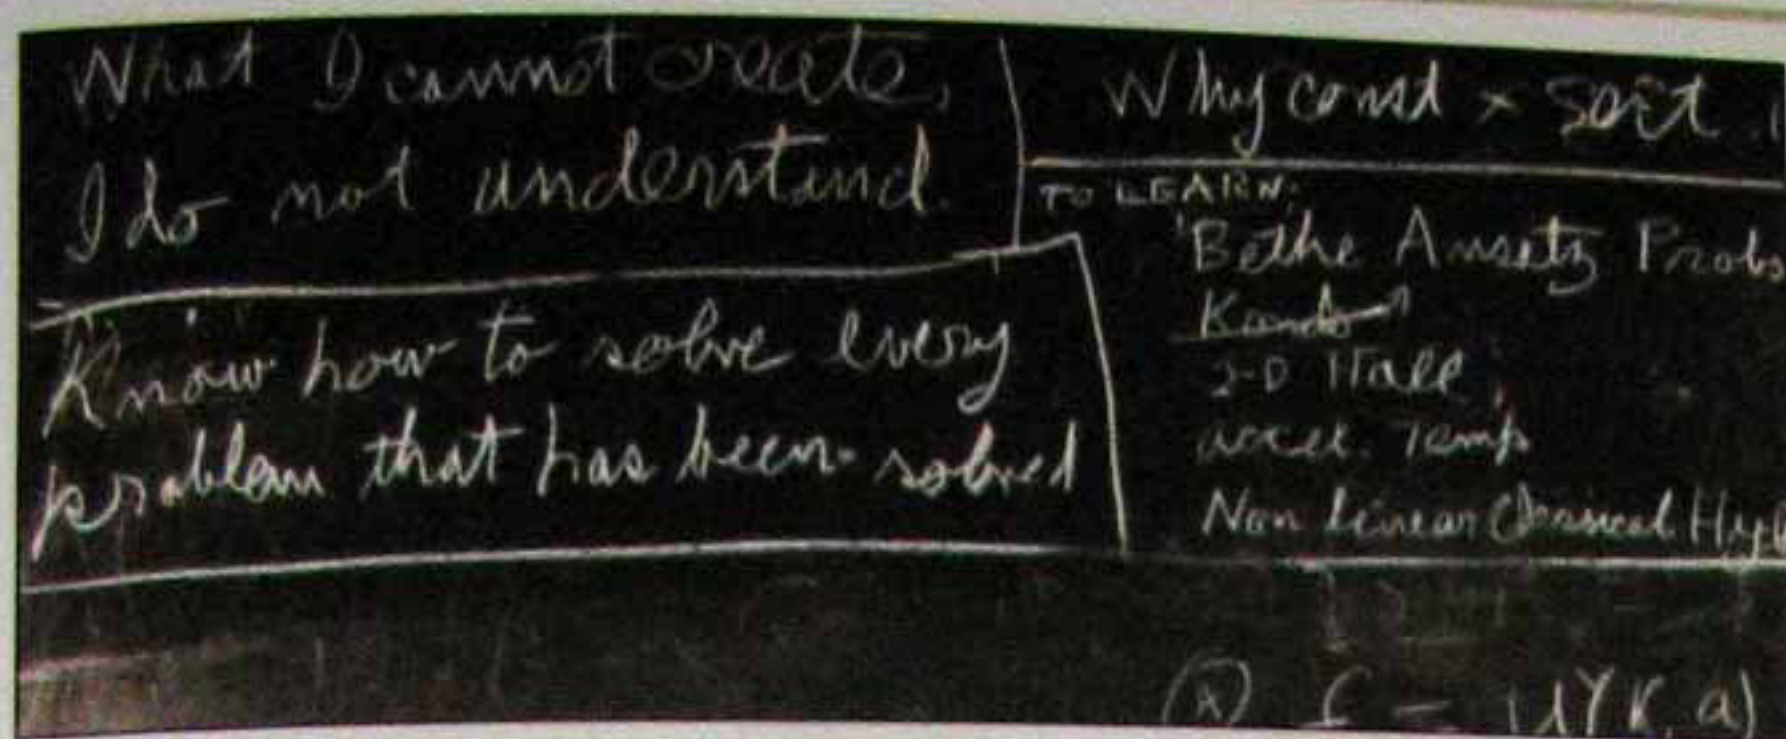 What I cannot create,
I do not understand.
Know how to solve every
problem that has been solved
Why const × sort
TO LEARN:
Bethe Ansatz Probs
Kondo
2-D Hall
accel. Temp
Non Linear Classical Hyd